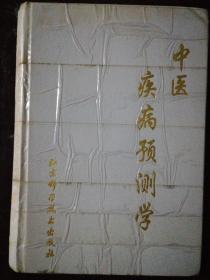 中医
疾病预测学
北京科学技术出版社